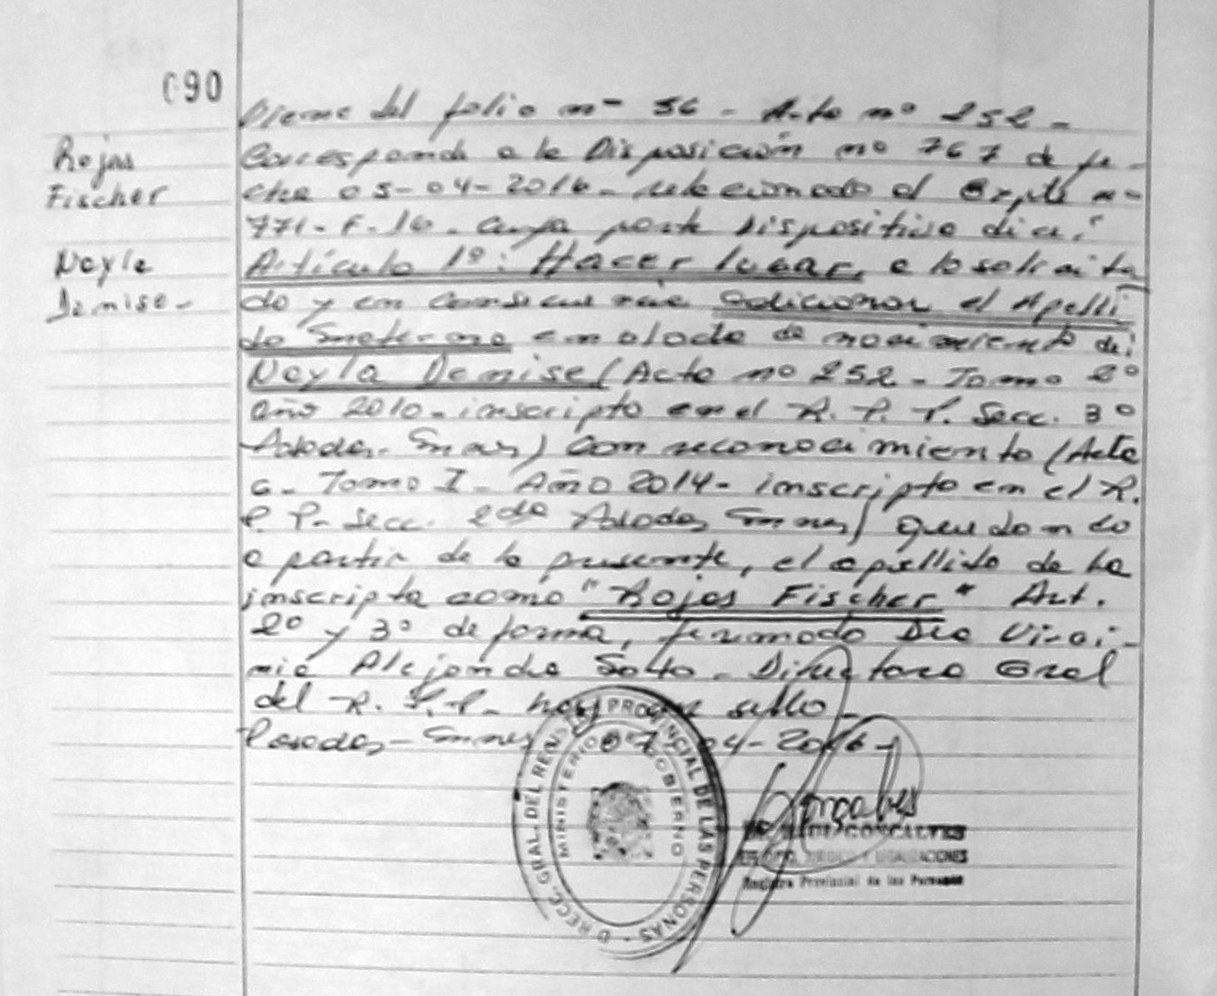 090
Rojas
Fischer
Neyla
Denise-
Viene del folio nº 56 - Acta nº 252 -
Corresponde a la Disposición nº 767 de fe-
cha 05-04-2016- relacionado al Expte nº
771-F-16- cuya parte dispositiva dice:"
Artículo 1º: Hacer lugar, a lo solicita
do y en consecuencia adicionar el Apelli
do materno en el acta de nacimiento de:
Neyla Denise (Acta nº 252 - Tomo 2º
año 2010- inscripto en el R. P. P. Secc. 3º
Posadas- Mnes) con reconocimiento (Acta
6- Tomo I- Año 2014- inscripto en el R.
P. P- Secc. 2da Posadas Mnes) quedando
a partir de la presente, el apellido de la
inscripta como "Rojas Fischer" Art.
2º y 3º de forma, firmado Dra Virgi-
nia Alejandra Soto - Directora Gral
del R. P. P- hay un sello -
Posadas- Mnes 07-04-2016-
DIRECC. GRAL. DEL REGISTRO PROVINCIAL DE LAS PERSONAS -
MINISTERIO GOBIERNO
Goncalves
GONCALVES
Registro Provincial de las Personas